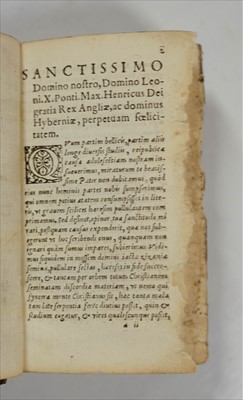 2
SANCTISSIMO
Domino nostro, Domino Leo-
ni. X. Ponti. Max. Henricus Dei
gratia Rex Angliæ, ac dominus
Hyberniæ, perpetuam fœlici-
tatem.
QVum partim bellicis, partim aliis
longe diuersis studiis, reipublicæ
causa adolescentiam nostram in-
sueuerimus, miraturum te beatissi-
me Pater non dubitamus, quòd
eius nunc hominis partes nobis sumpserimus,
qui omnem potius ætatem consumpsisset in lite-
ris, vt grauem scilicet hæresim pullulantem com
primamus, sed desinet, opinor, tua sanctitas mi
rari, posquam causas expenderit, quæ nos sub-
egerunt vt hoc scribendi onus, quanquam non
ignari quàm simus impares, subiremus. Vidi-
mus siquidem in messem domini iacta zizaniæ
semina, pullulare sectas, hæreses in fide succre-
scere, & tantam per orbem totum Christianum
seminatam discordiæ materiam, vt nemo qui
syncera mente Christianus sit, hæc tanta mala
tam late serpentia ferre diutius possit, quin &
studium cogatur, & vires qualescunque possit,
a ii